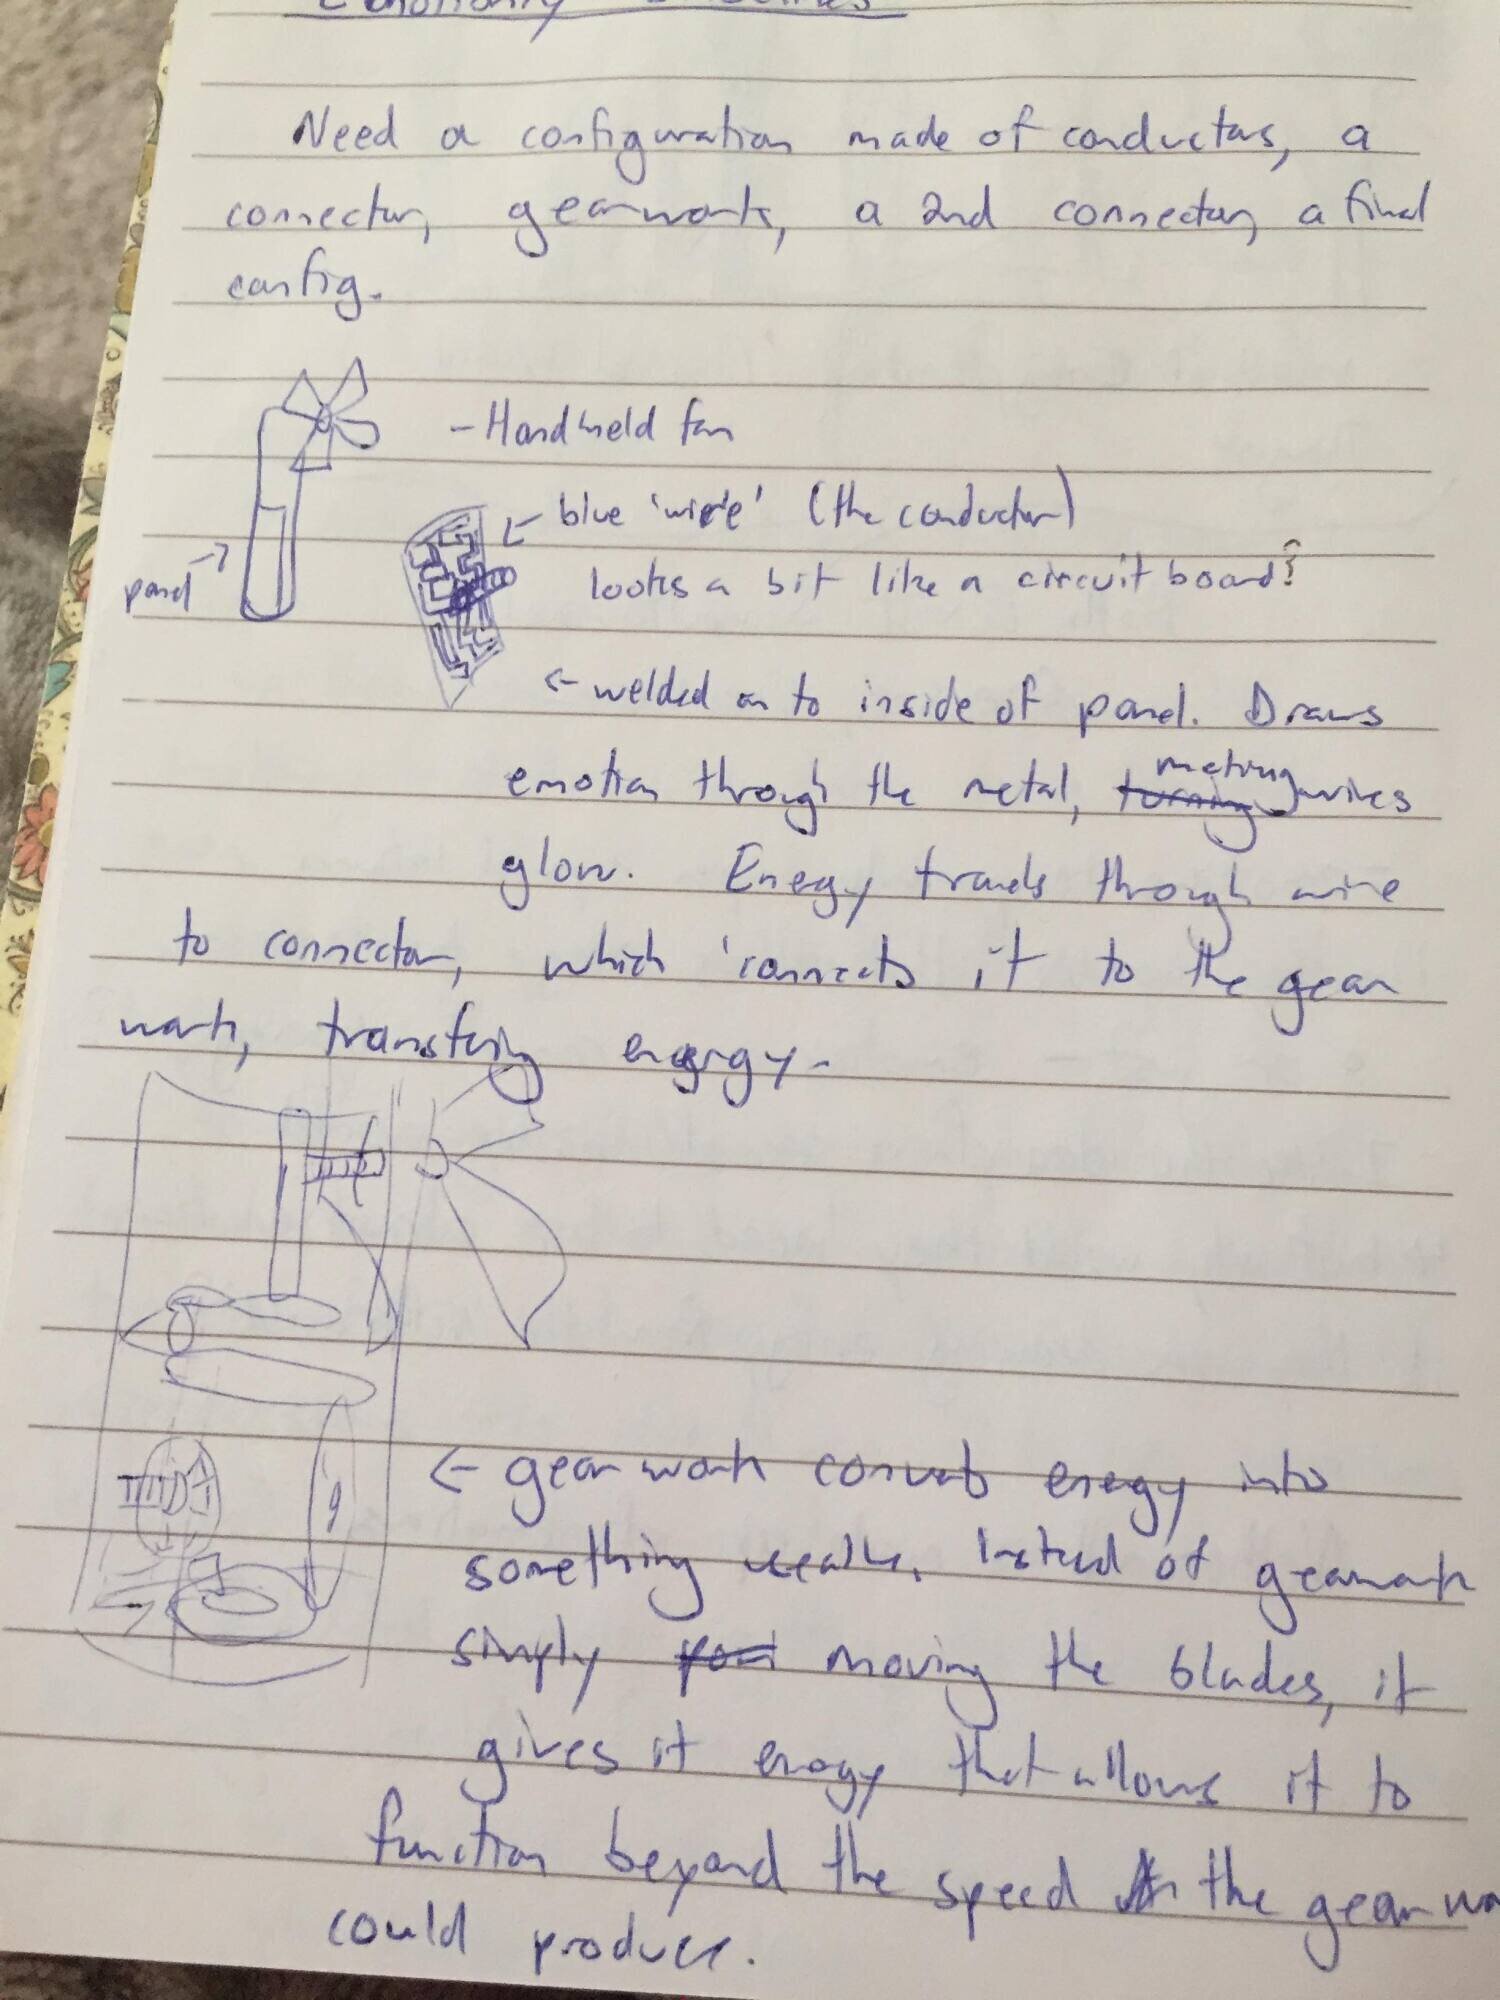 Need a configuration made of conductors, a
connector, gearwork, a 2nd connector, a final
config.
- Handheld fan
blue 'wire' (the conductor)
panel
looks a bit like a circuit board?
welded on to inside of panel. Draws
emotion through the metal, making wires
glow. Energy travels through wire
to connector, which 'connects it to the gear
work, transfering energy.
gearwork converts energy into
something usable. Instead of gearwork
simply moving the blades, it
gives it energy that allows it to
function beyond the speed the gearwo
could produce.